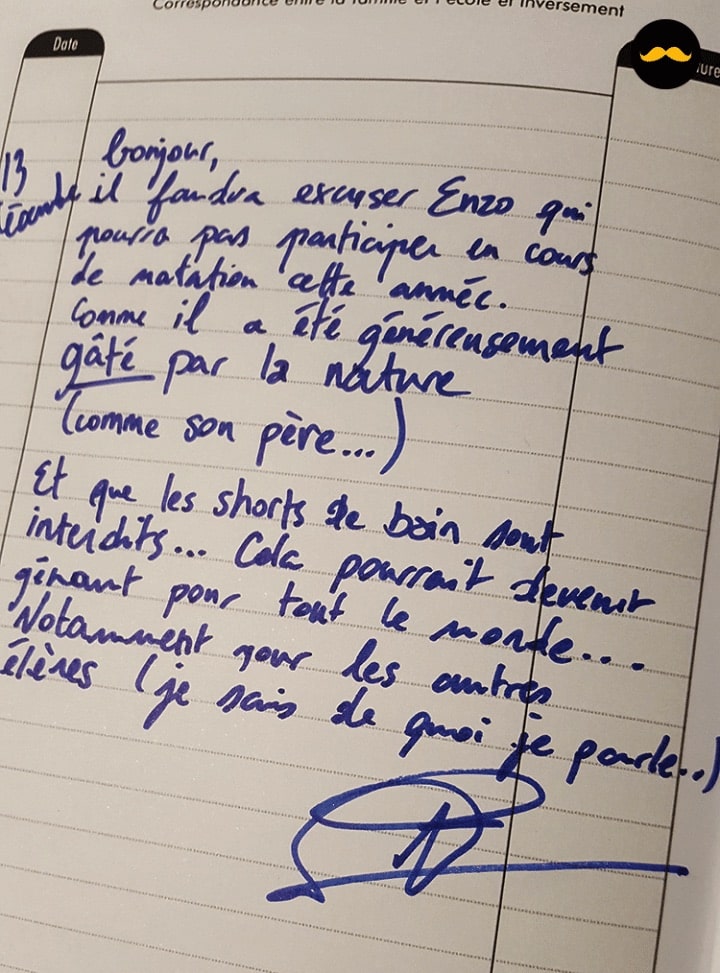 Correspondance entre la famille et l'école et inversement
Date
ure
13
décembre
bonjour,
il faudra excuser Enzo qui
pourra pas participer en cours
de natation cette année.
Comme il a été généreusement
gâté par la nature
(comme son père...)
Et que les shorts de bain sont
interdits... Cela pourrait devenir
gênant pour tout le monde....
Notamment pour les autres
élèves (je sais de quoi je parle..)